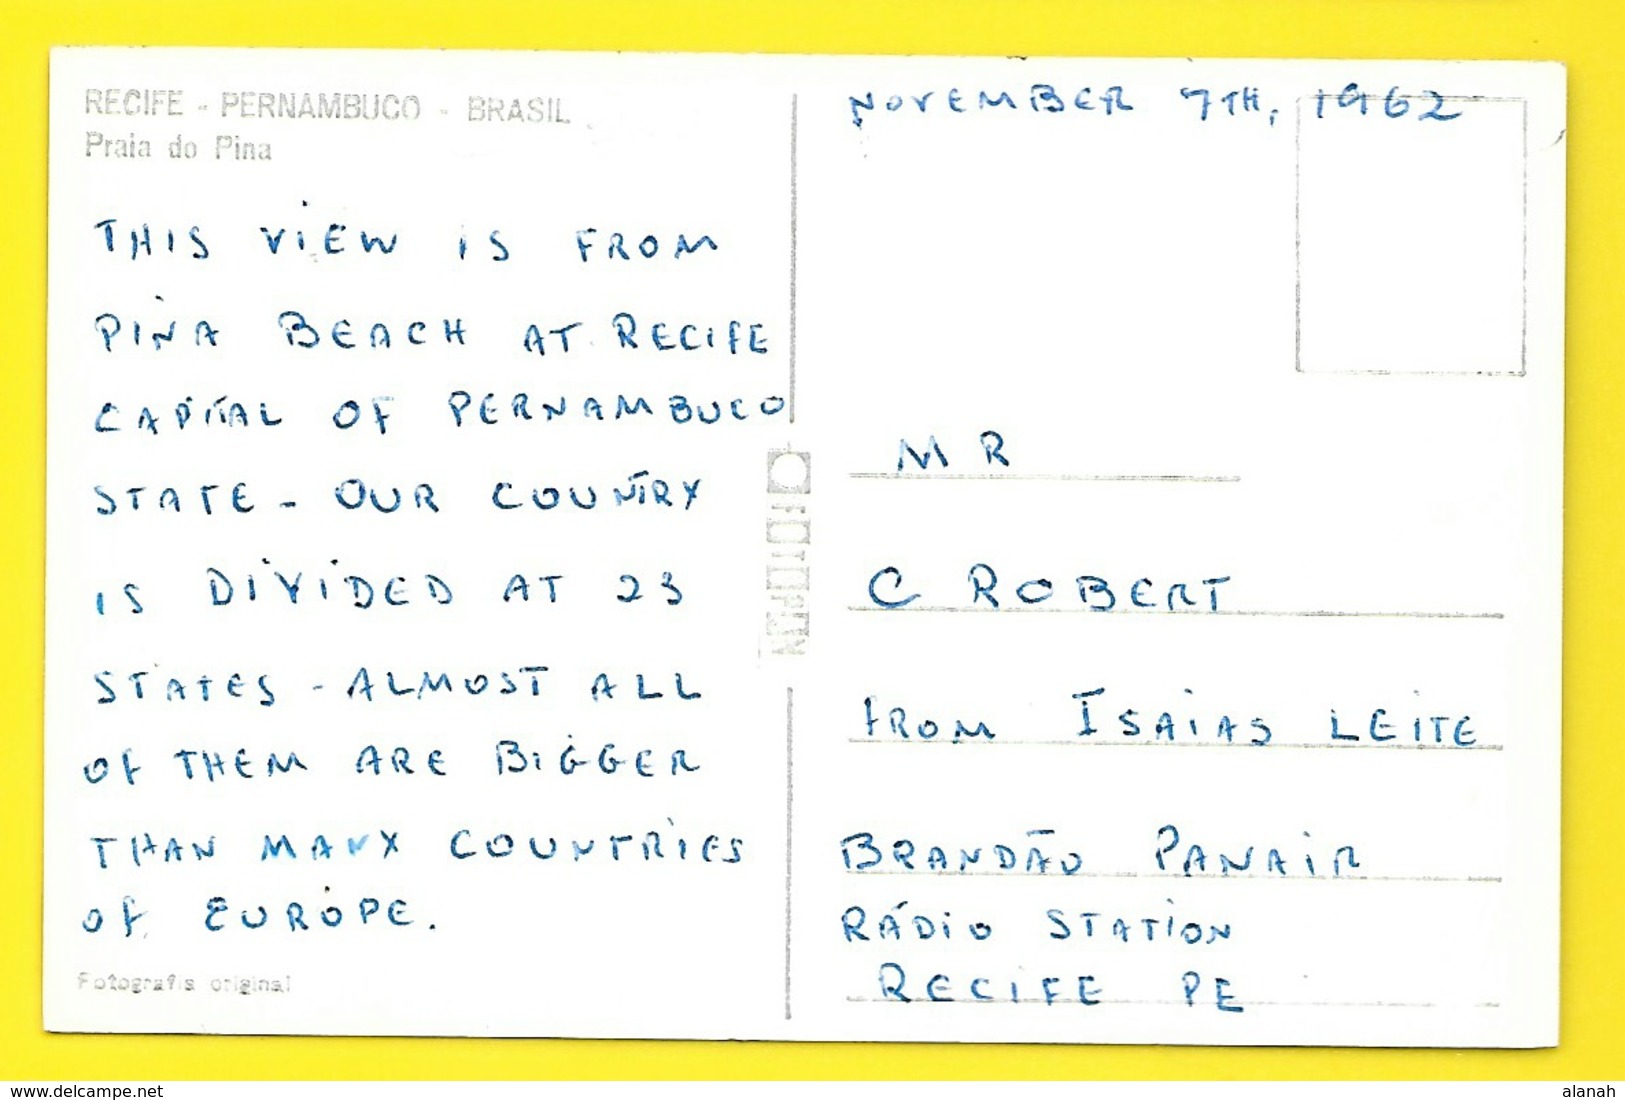 RECIFE - PERNAMBUCO - BRASIL
Praia do Pina
THIS VIEW IS FROM
PINA BEACH AT RECIFE
CAPITAL OF PERNAMBUCO
STATE - OUR COUNTRY
IS DIVIDED AT 23
STATES - ALMOST ALL
OF THEM ARE BIGGER
THAN MANY COUNTRIES
OF EUROPE.
Fotografia original
FOTOPAN
NOVEMBER 7TH, 1962
MR
C ROBERT
FROM ISAIAS LEITE
BRANDÃO PANAIR
RÁDIO STATION
RECIFE PE
www.delcampe.net
alanah